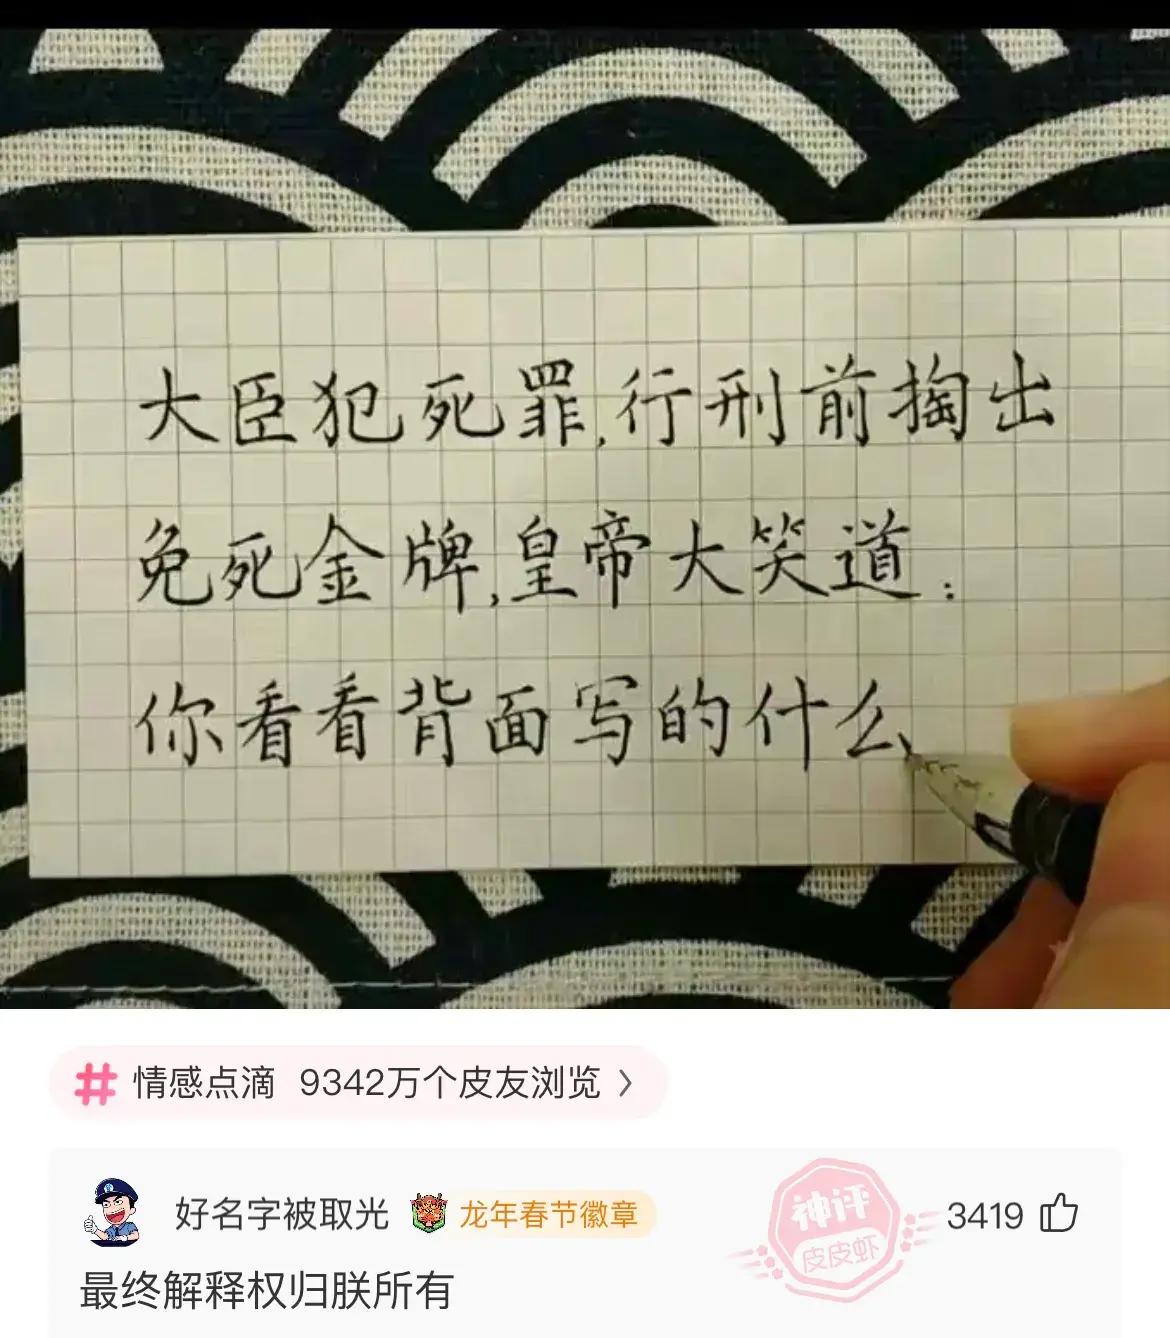 大臣犯死罪,行刑前掏出
免死金牌,皇帝大笑道:
你看看背面写的什么
情感点滴 9342万个皮友浏览
好名字被取光 龙年春节徽章 神评 皮皮虾 3419
最终解释权归朕所有